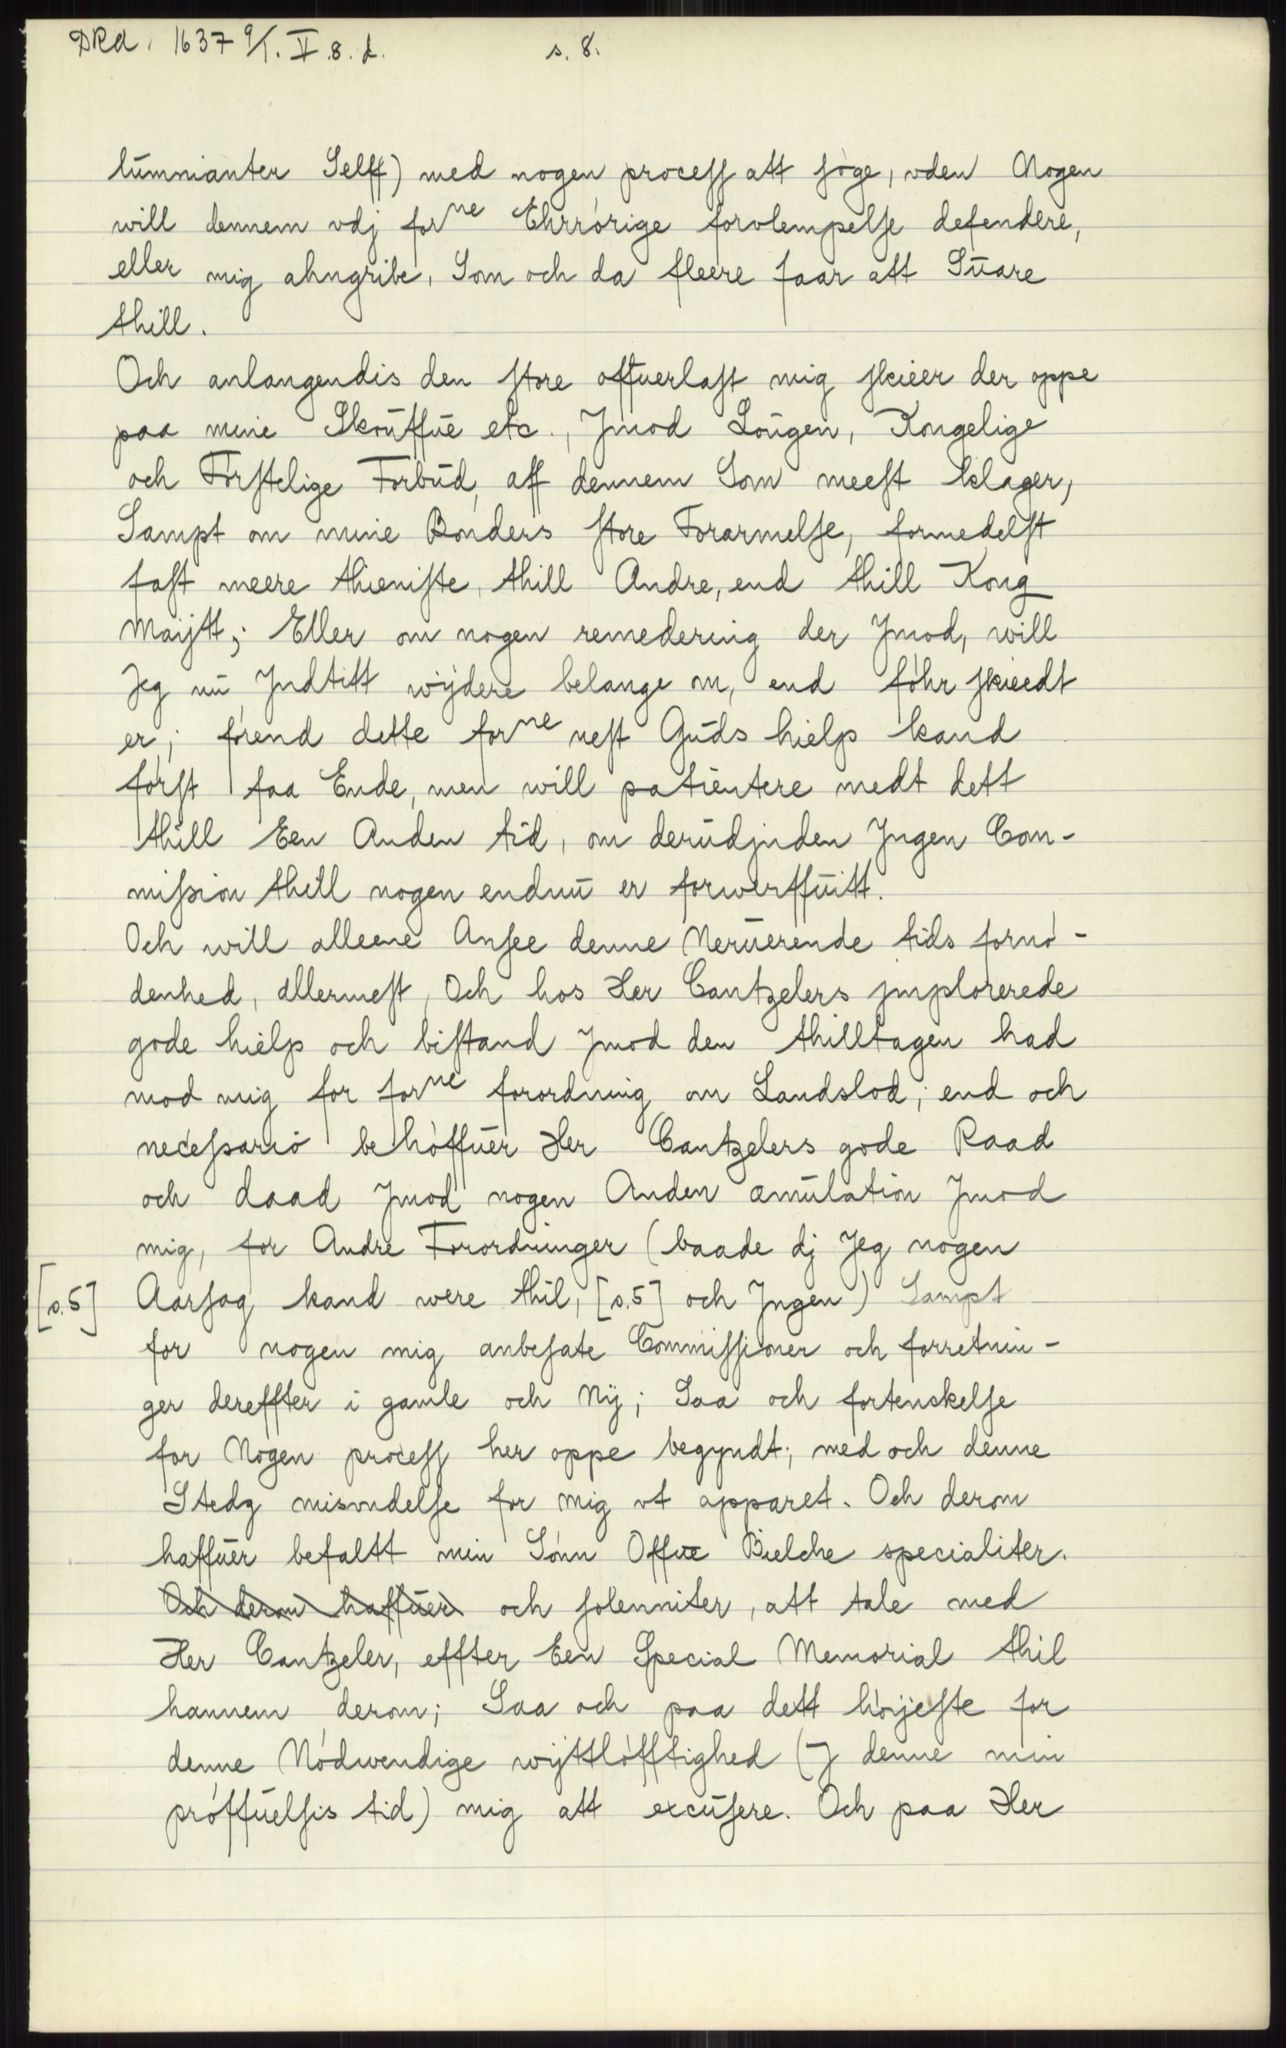 DRA. 1637 9/1. V. 8. d. s. 8.
lumnianter Selff) med nogen process att søge, vden Nogen
will dennem vdj forne Ehrrørige forolempelse defendere,
eller mig ahngribe, Som och da fleere faar att Suare
thill.
Och anlangendis den store offuerlast mig skieer der oppe
paa mine Skouffue etc., Jmod Lougen, Kongelige
och Førstelige Forbud, aff dennem Som meest klager,
Sampt om mine Bønders store Forarmelse, formedelst
fast meere thieniste, thill Andre, end thill Kong
Maijtt; Eller om nogen remedering der Jmod, will
Jeg nu Jndtitt wijdere belange om, end føhr skieedt
er; førend dette forne nest Guds hielp kand
først faa Ende, men will patientere medt dett
thill Een Anden tid, om derudjnden Jngen Com-
mission thill nogen endnu er forwerffuitt.
Och will alleene Ansee denne Neruerende tids fornø-
denhed, allermest, Och hos Her Cantzelers jmplorerede
gode hielp och bistand Jmod den thilltagen had
mod mig for forne forordning om Landslod; end och
necessario behøffuer Her Cantzelers gode Raad
och daad Jmod nogen Anden æmulation Jmod
mig, for Andre Forordninger (baade dj Jeg nogen
[s.5] Aarsag kand were thil, [s.5] och Jngen) Sampt
for nogen mig anbefate Commissioner och forretnin-
ger dereffter i gamle och Nij; Saa och fortenskelse
for Nogen process her oppe begyndt; med och denne
Stedz misvndelse for mig vt apparet. Och derom
haffuer befaltt min Sønn Offue Bielche specialiter.
Och derom haffuer och solenniter, att tale med
Her Cantzeler, effter Een Special Memorial thil
hannem derom; Saa och paa dett høijeste for
denne Nødwendige wijttløfftighed (J denne min
prøffuelsis tid) mig att excusere. Och paa Her